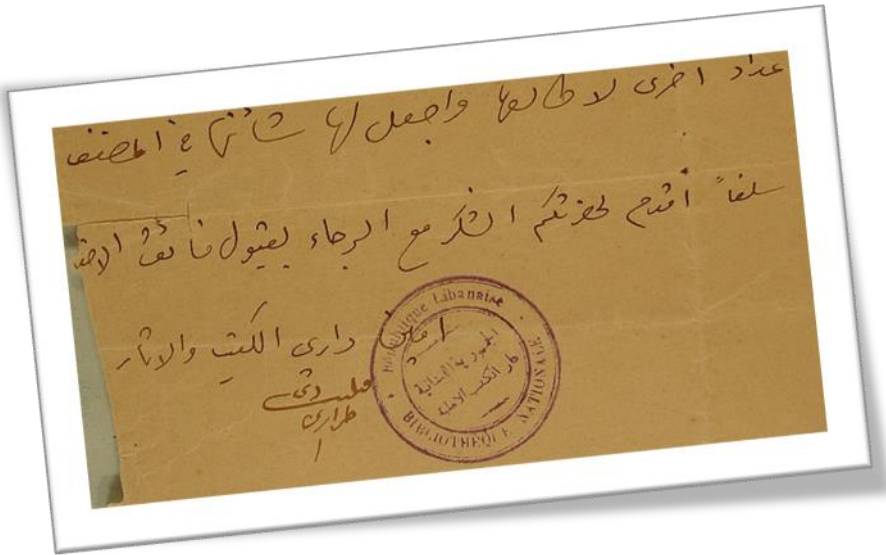 عداد اخرى لاطالعها واجعل لها شأنها في المصنف
سلفاً أقدم لحضرتكم الشكر مع الرجاء بقبول فائق الاحتر
امين داري الكتب والاثار
فيليب دي
طرازي
République Libanaise
الجمهورية اللبنانية
دار الكتب
BIBLIOTHÈQUE NATIONALE